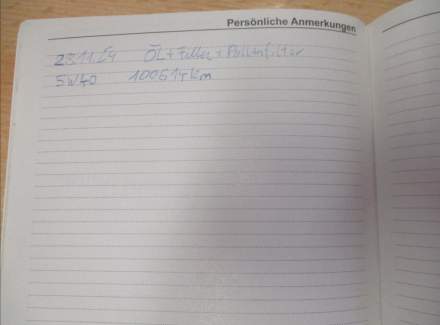 Persönliche Anmerkungen
23.11.24 ÖL + Filter + Pollenfilter
5W40 100614 km